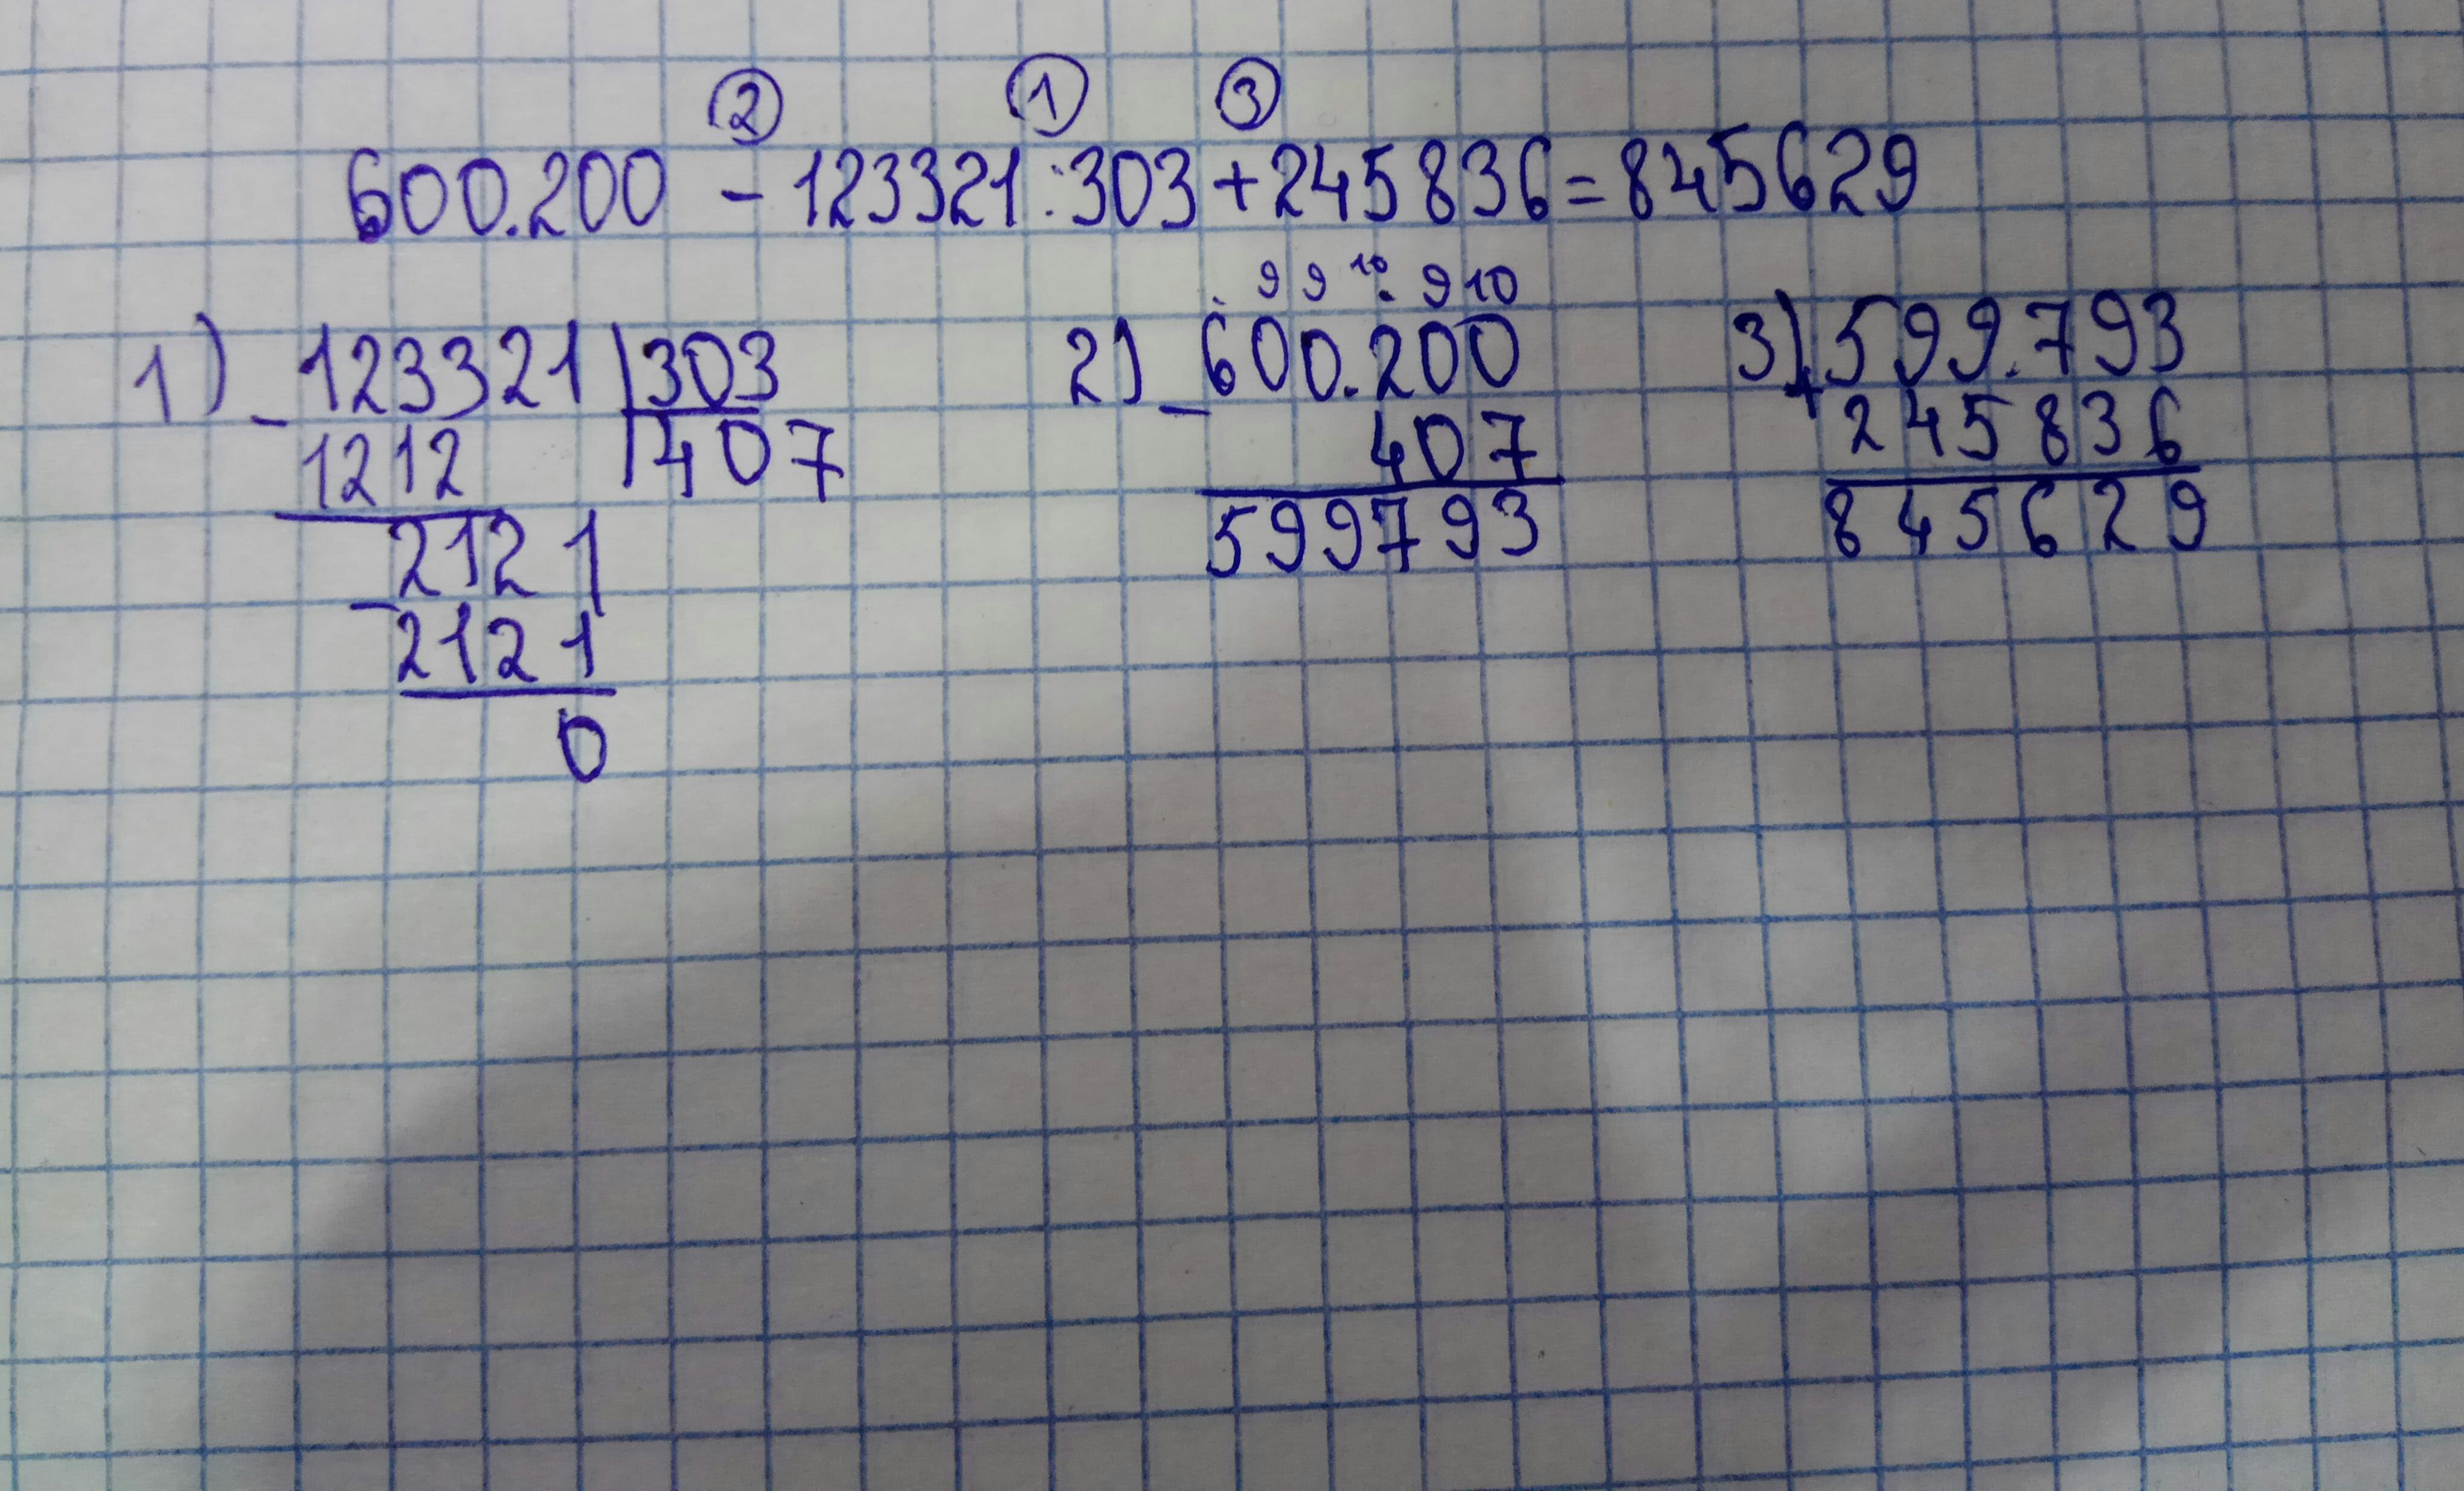 ② ① ③
600.200 - 123321:303+245836=845629
1) - 123321 | 303
1212 | 407
2121
- 2121
0
9 9 10 9 10
2) - 600.200
407
599793
3) + 599.793
245836
845629